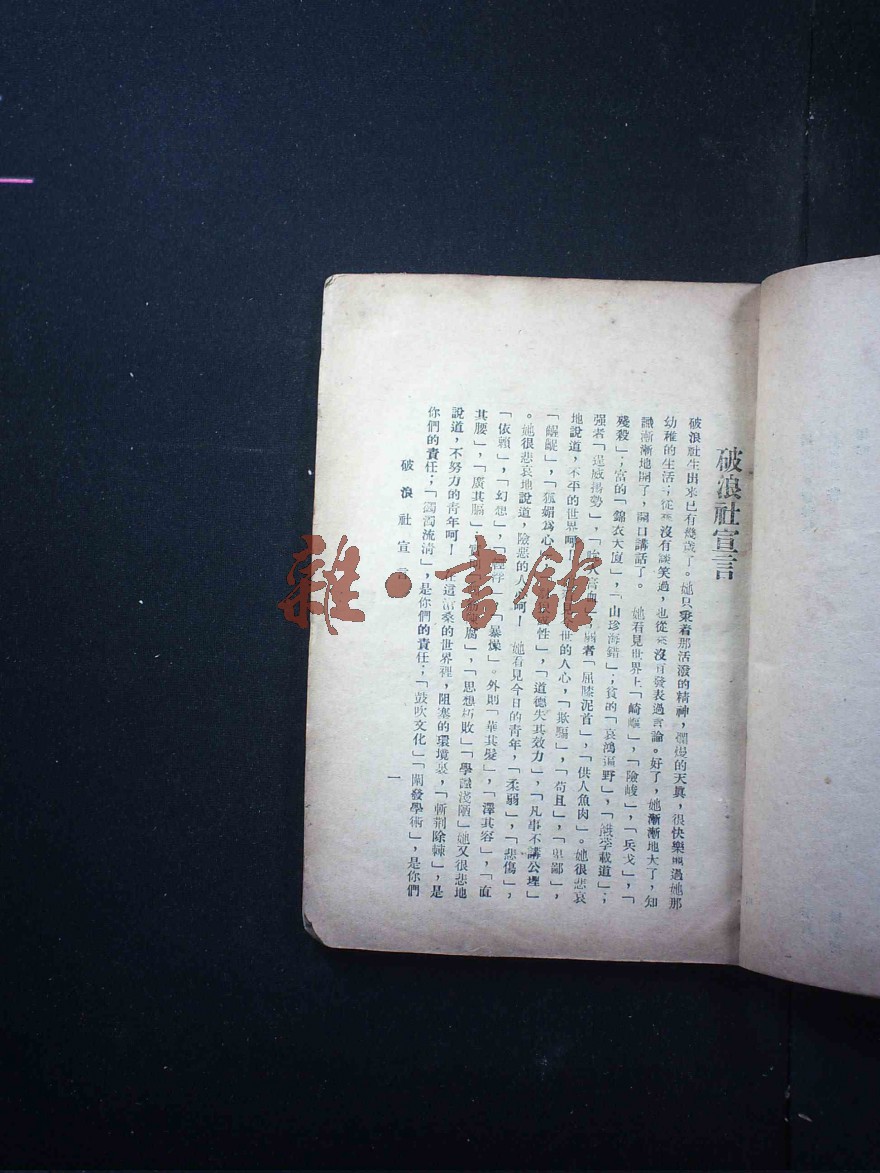 破浪社宣言
破浪社生出來已有幾歲了。她只秉着那活潑的精神，爛熳的天眞，很快樂過她那
幼稚的生活；從來沒有談笑過，也從來沒有發表過言論。好了，她漸漸地大了，知
識漸漸地開了，開口講話了。她看見世界上「崎嶇」，「險峻」，「兵戈」，「
殘殺」；富的「錦衣大廈」，「山珍海錯」；貧的「哀鴻遍野」，「餓莩載道」；
强者「逞威揚勢」，「人膏血」者「屈膝泥首」，「供人魚肉」。她很悲哀
地說道，不平的世界呵！世的人心，「欺騙」，「苟且」，「卑鄙」，
「齷齪」，「狐媚爲心」性」，「道德失其效力」，「凡事不講公理」
。她很悲哀地說道，險惡的人呵！她看見今日的靑年，「柔弱」，「悲傷」，
「依賴」，「幻想」，「浮」「暴燥」。外則「華其髮」，「澤其容」，「直
其腰」，「廣其腦」；腐」，「思想朽敗」「學識淺陋」她又很悲地
說道，不努力的靑年呵！在這滄桑的世界裡，阻塞的環境裏，「斬荆除棘」，是
你們的責任；「濁流淸」，是你們的責任；「鼓吹文化」「闡發學術」，是你們
破浪社宣言
一
雜·書館